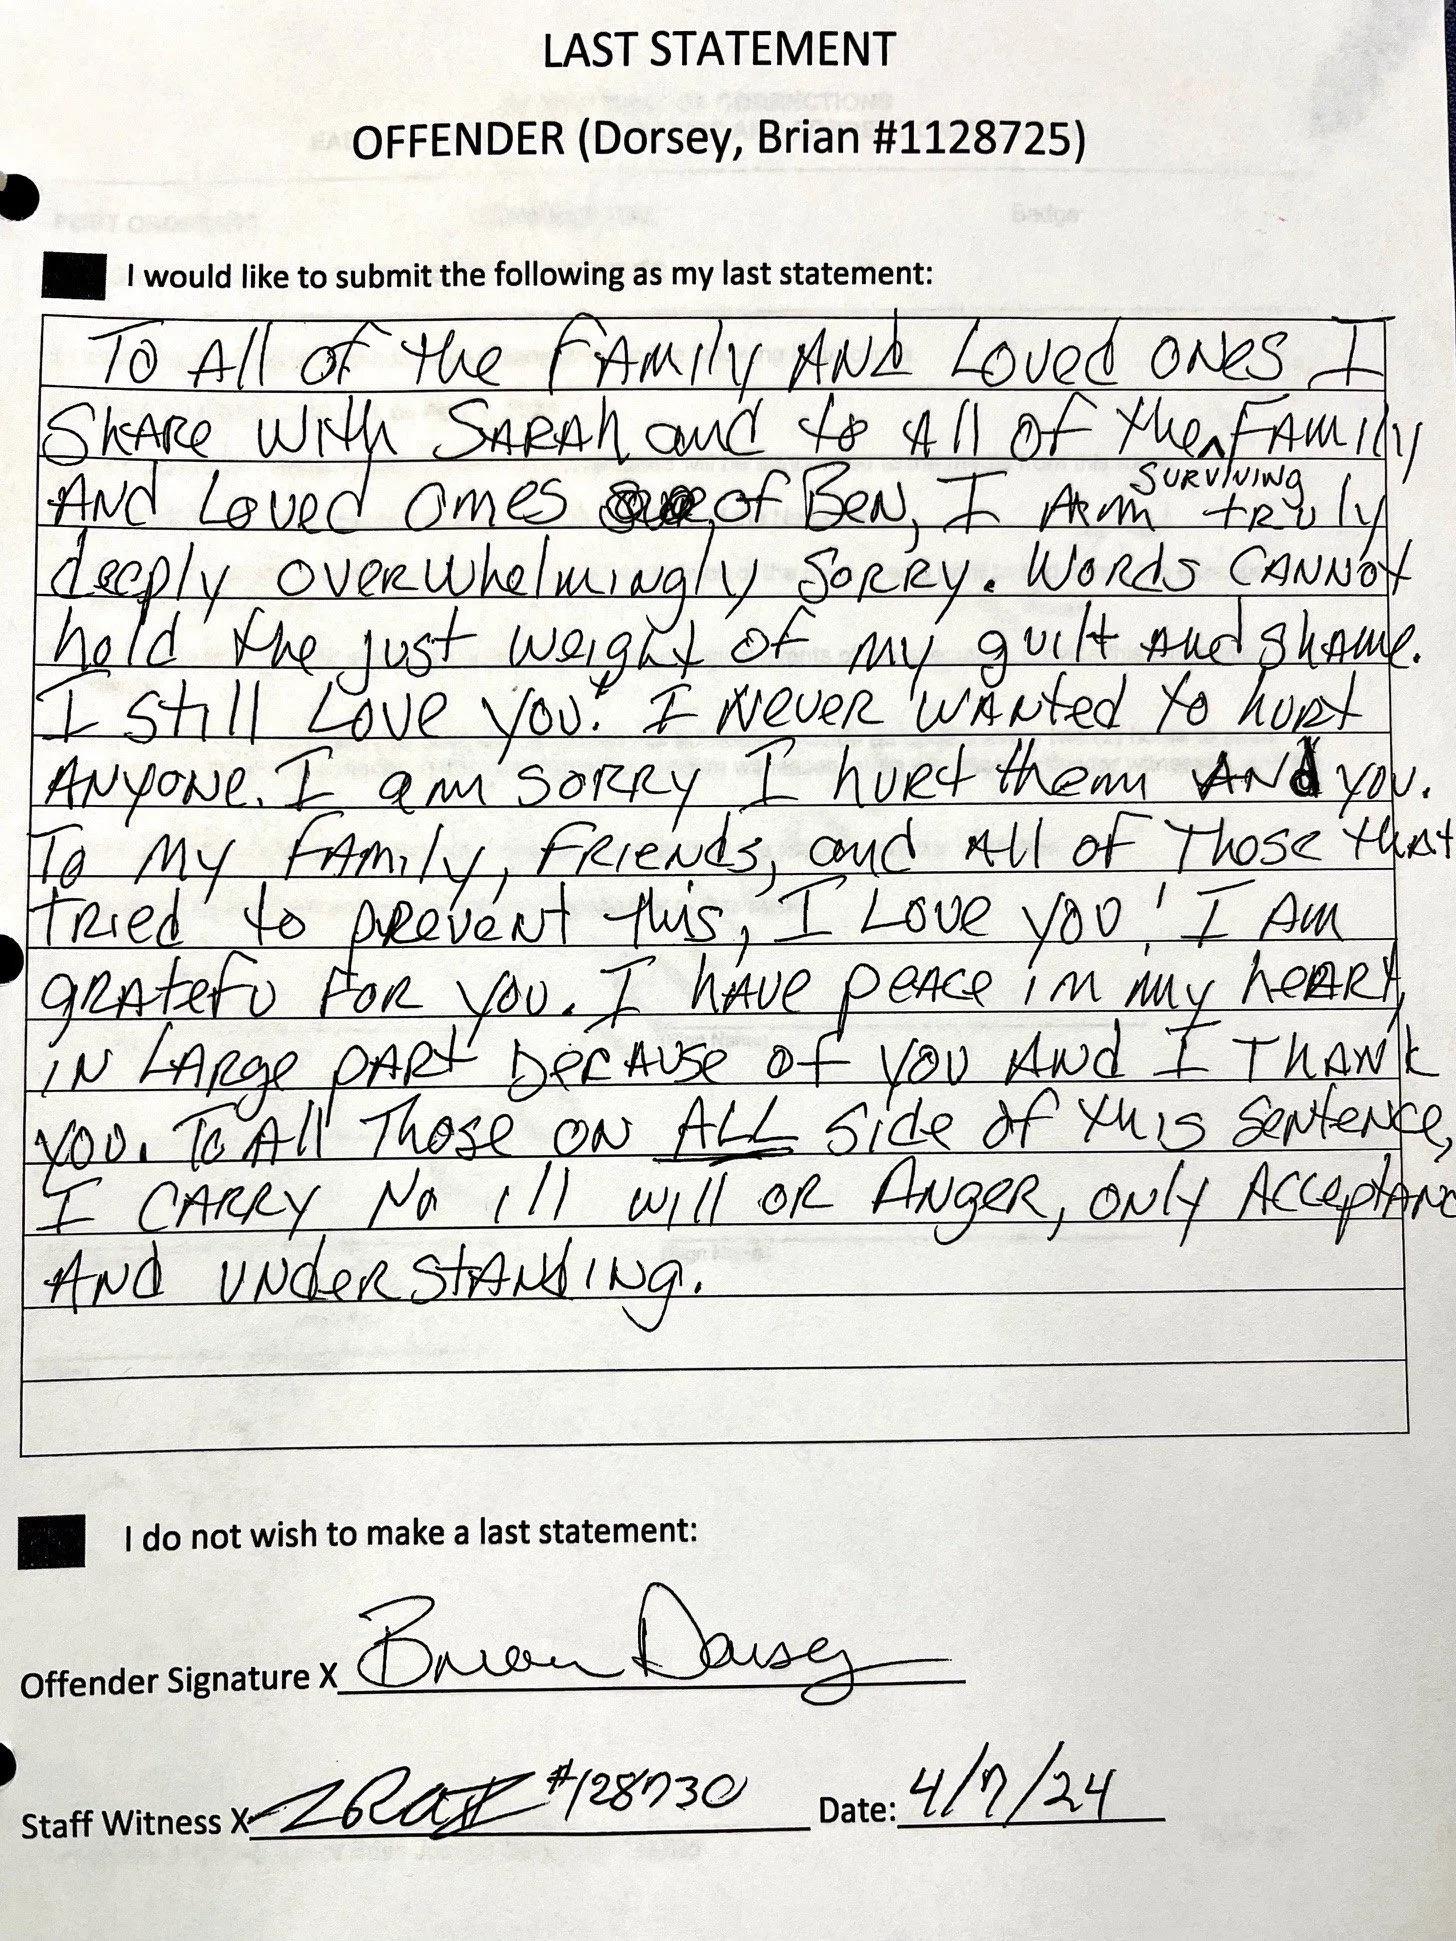 LAST STATEMENT
OFFENDER (Dorsey, Brian #1128725)
I would like to submit the following as my last statement:
To All of the Family And Loved ones I
Share with Sarah and to All of the ^ Family
surviving
And Loved ones of Ben, I Am truly
deeply overwhelmingly sorry. Words cannot
hold the just weight of my guilt and shame.
I still Love you. I never wanted to hurt
Anyone. I am sorry I hurt them And you.
To My Family, Friends, and All of Those that
Tried to prevent this, I Love you! I Am
gratefu for you. I have peace in my heart,
in Large part because of you And I Thank
you. To All Those on ALL side of this sentence,
I carry No ill will or Anger, only Acceptanc
And understanding.
I do not wish to make a last statement:
Offender Signature X Brian Dorsey
Staff Witness X #128730 Date: 4/7/24